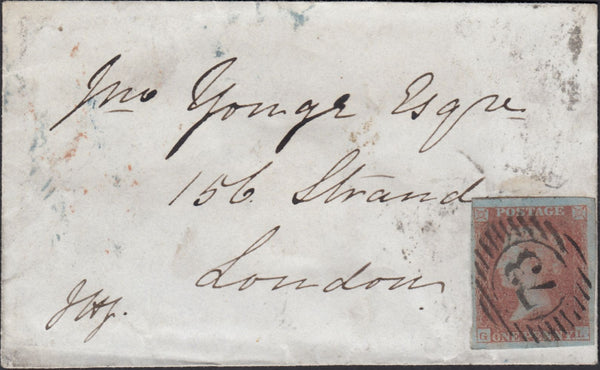 Jno Yonge Esqre
156 Strand
London
POSTAGE
73
G ONE PENNY L